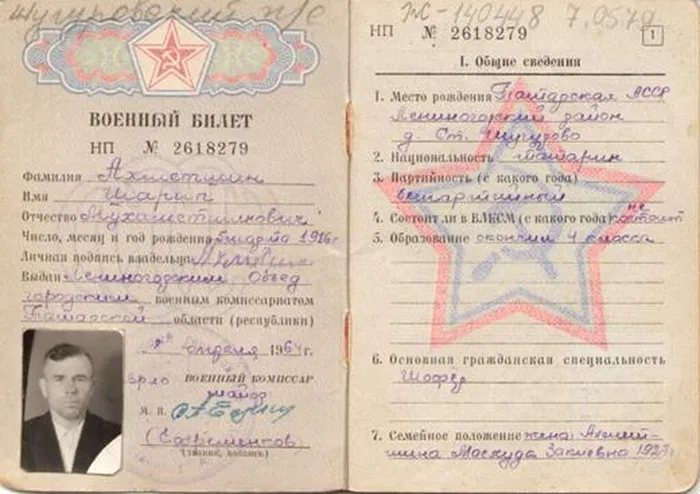 Шугуровский п/с
ВОЕННЫЙ БИЛЕТ
НП № 2618279
Фамилия Ахметшин
Имя Шарип
Отчество
Число, месяц и год рождения 5 марта 1916г
Личная подпись владельца
Выдан Лениногорским Объед
городским военным комиссариатом
Татарской области (республики)
апреля 1964г.
ВОЕННЫЙ КОМИССАР
майор
М. П.
(звание, подпись)
ЖС-140448 7.05.79
НП № 2618279 1
I. Общие сведения
1. Место рождения Татарская АССР
Лениногорский район
д. Ст. Шугурово
2. Национальность татарин
3. Партийность (с какого года)
беспартийный
4. Состоит ли в ВЛКСМ (с какого года) не состоит
5. Образование окончил 4 класса
6. Основная гражданская специальность
Шофёр
7. Семейное положение жена Ахмет-
шина Маскуда Закиевна